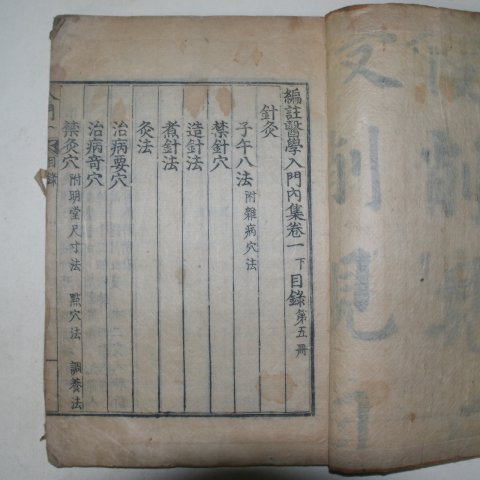 編註醫學入門內集卷一 下 目錄 第五冊
針灸
子午八法 附雜病穴法
禁針穴
造針法
煮針法
灸法
治病要穴
治病奇穴
禁灸穴 附明堂尺寸法 點穴法 調養法
入門 目錄